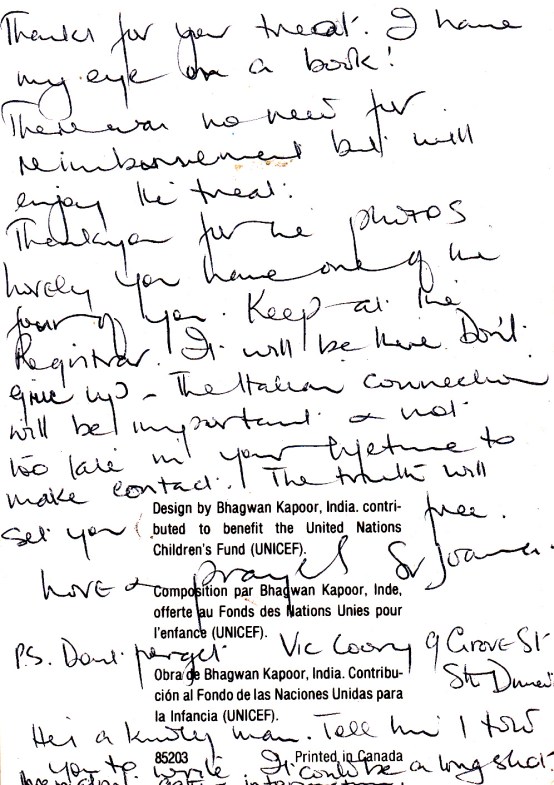 Thanks for your treat. I have
my eye on a book!
There was no need for
reimbursement but will
enjoy the treat.
Thankyou for the photos
lovely you have one of the
four of you. Keep at the
Registrar. It will be there. Don't
give up - The Italian connection
will be important & not
too late in your lifetime to
make contact. The truth will
set you free.
Design by Bhagwan Kapoor, India. contri-
buted to benefit the United Nations
Children's Fund (UNICEF).
Love & prayers Sr Joanna.
Composition par Bhagwan Kapoor, Inde,
offerte au Fonds des Nations Unies pour
l'enfance (UNICEF).
P.S. Don't forget Vic Coory 9 Grove St
St
Obra de Bhagwan Kapoor, India. Contribu-
ción al Fondo de las Naciones Unidas para
la Infancia (UNICEF).
He's a kindly man. Tell him I told
85203 Printed in Canada
you to write It could be a long shot